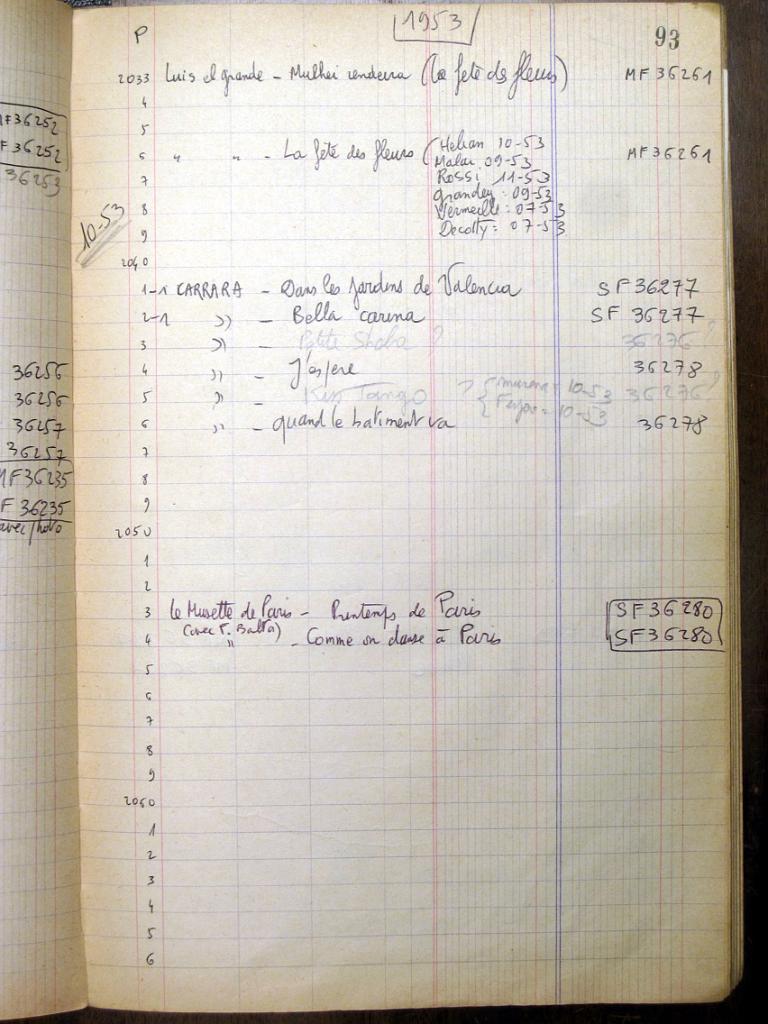 1953
93
P
2033 Luis el grande - Mulhei rendeira (la fête des fleurs) MF 36261
4
5
6 " " - La fête des fleurs ( Hélian 10-53 MF 36261
Malar 09-53
7 Rossi 11-53
Grandey : 09-53
8 Vermeille : 07-53
9 Decotty = 07-53
10-53
2040
1-1 CARRARA - Dans les jardins de Valencia SF 36277
2-1 " - Bella carina SF 36277
3 " - Petite Shaba ? 36276 ?
4 " - J'espère 36278
5 " - Kiss Tango ? { Murena = 10-53 36276 ?
{ = 10-53
6 " - quand le batiment va 36278
7
8
9
2050
1
2
3 le Musette de Paris - Printemps de Paris SF 36280
(avec F. Balta)
4 " - Comme on danse à Paris SF 36280
5
6
7
8
9
2060
1
2
3
4
5
6
MF 36252
F 36252
36253
36256
36256
36257
36257
MF 36235
F 36235
avec photo